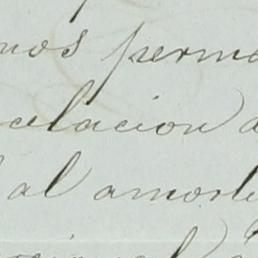 mos perm
celacion a
al amort